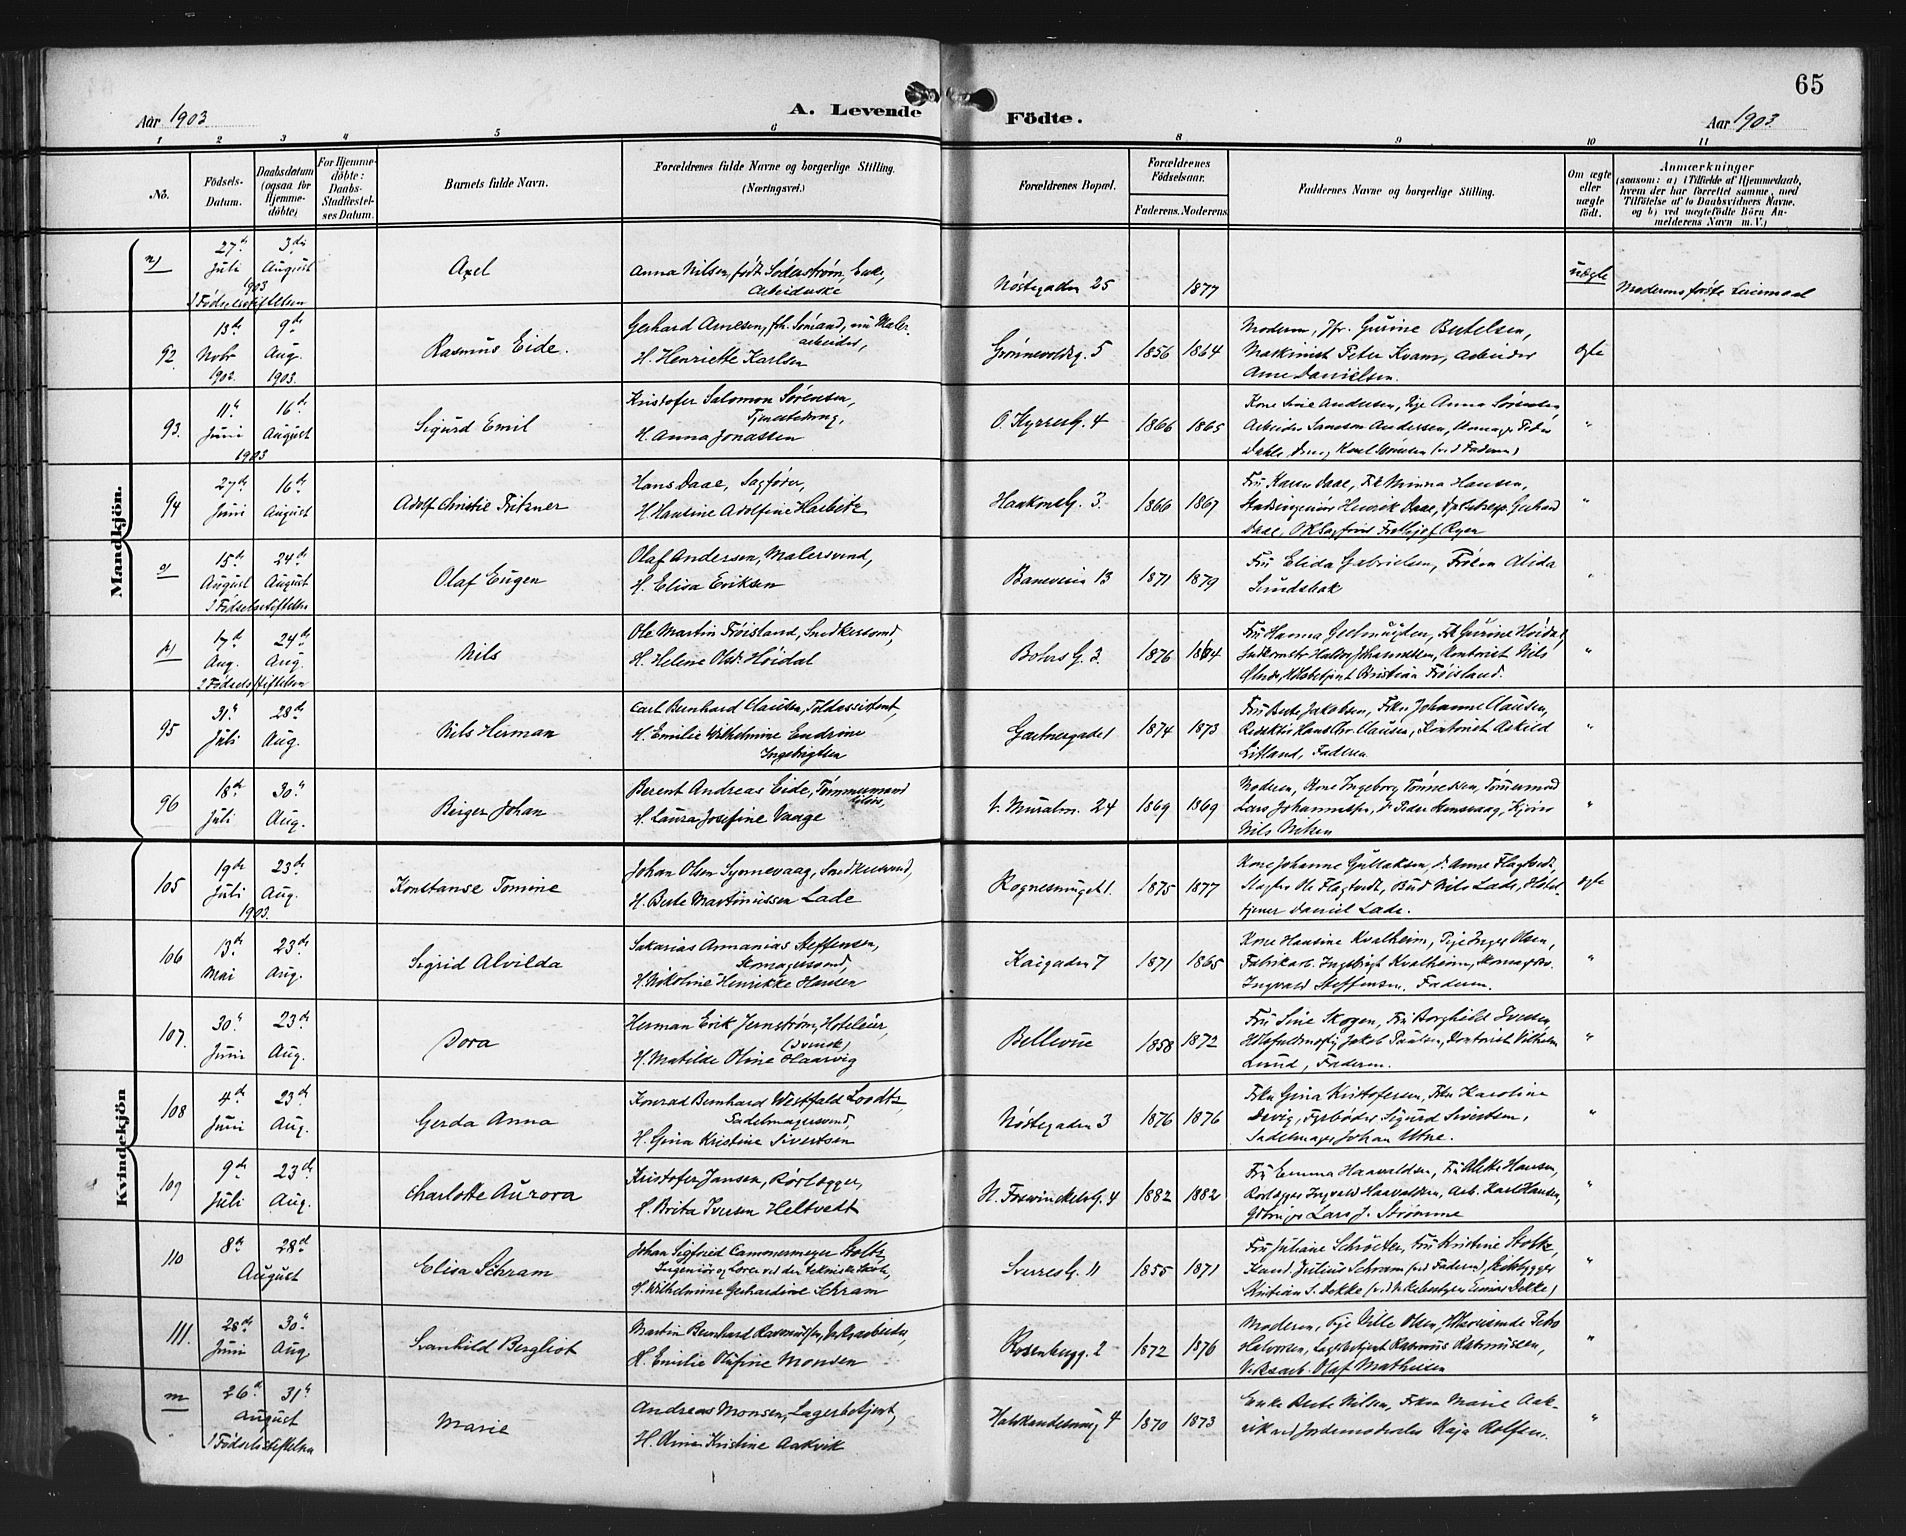 65
Aar 1903
A. Levende Födte.
Aar 1903
1 2 3 4 5 6 8 9 10 11
No.
Födsels-Datum.
Daabsdatum (ogsaa for Hjemme-döbte)
For Hjemme-döbte: Daabs-Stadfæstel-ses Datum.
Barnets fulde Navn.
Forældrenes fulde Navne og borgerlige Stilling. (Næringsvei.)
Forældrenes Bopæl.
Forældrenes Födselsaar.
Faderens. Moderens.
Faddernes Navne og borgerlige Stilling.
Om ægte eller uægte födt.
Anmærkninger
(saasom: a) i Tilfælde af Hjemmedaab,
hvem der har forrettet samme, med
Tilföielse af to Daabsvidners Navne,
og b) ved uægtefödte Börn An-
melderens Navn m. V.)
Mandkjön.
n) 27de Juli 3die August 1903
I Fødselsstiftelsen
Axel
Anna Nilsen, født Söderström, Enke,
Arbeiderske
Nöstegaden 25
1877
uægte
Moderens første Leiermaal
92. 13de Novbr 1902. 9de Aug. 1903.
Rasmus Eide.
Gerhard Arnesen, fh. Sömand, nu Maler-
arbeider,
H. Henriette Karlsen
Grönnevoldsg. 5
1856 1864
Moderen, Jfr. Gurine Bertelsen,
Maskinist Peter Kvam, Arbeider
Arne Danielsen.
ægte
93. 11te Juni 16de August 1903
Sigurd Emil
Kristofer Salomon Sörensen,
H. Anna Jonassen
O. Kyrresg. 4
1866 1865
Kone Sine Andersen, Pige Anna Sörensen,
Arbeider Samson Andersen, Skomager Peder
Dahle, Karl Sörensen (ved Faderen)
"
94 27de Juni 16de August
Adolf Christie Fritzner
Hans Daae, Sagförer,
H. Hansine Adolfine Harbitz
Haakonsg. 3
1866 1867
Fru Karen Daae, Frk Minna Hansen,
Stadsingeniör Henrik Daae, Gerhard
Daae, Fridtjof Ryer
"
o) 15de August 24de August
I Fødselsstiftelsen
Olaf Eugen
Olaf Andersen, Malersvend,
H. Elisa Eriksen
Baneveien 13
1871 1879
Fru Elida Gabrielsen, Fröken Alida
Sundsbak
"
p) 17de Aug. 24de Aug.
I Fødselsstiftelsen
Nils
Ole Martin Fröisland, Snedkersvend,
H. Helene Olsdr. Höidal
Bohrs G. 3
1876 1874
Fru Hanna Geelmuyden, Frk Gurine Höidal,
Johannessen, Kontorist Nils
Kristian Fröisland.
"
95 31te Juli 28de Aug.
Nils Herman
Carl Bernhard Clausen, Toldassistent,
H. Emilie Wilhelmine Endrine
Ingebrigtsen
Gartnergade 1
1874 1873
Fru Berte Jakobsen, Frkn Johanne Clausen,
Redaktör Hans Chr. Clausen, Kontorist Askild
Litland, Faderen.
"
96 18de Juli 30te Aug.
Birger Johan
Berent Andreas Eide, Tömmermand
H. Laura Josefine Vaage
V. Muralm. 24
1869 1869
Moderen, Kone Ingeborg Tönnessen, Tömmermand
Lars Johannessen, Peder
Nils Nilsen
"
Kvindekjön
105 19de Juli 23de Aug. 1903.
Konstanse Tomine
Johan Olsen Synnevaag, Snedkersvend,
H. Berte Martinussen Lade
Rognesmuget 1.
1875 1877
Kone Johanne Gullaksen, do Anne Flagtvedt,
Slagter Ole Flagtvedt, Bud Nils Lade, Hotel-
tjener Daniel Lade.
ægte
106 13de Mai 23de Aug.
Sigrid Alvilda
Sakarias Ammanias Steffensen,
Skomagersvend,
H. Nikoline Henrikke Hansen
Kaigaden 7
1871 1865
Kone Hansine Kvalheim, Pige Inger Olsen,
Fabrikarb. Ingebrigt Kvalheim, Skomagersv.
Ingvald Steffensen. Faderen.
"
107. 30te Juni 23de Aug.
Dora
Herman Erik Jernström, Hoteleier,
(Svensk)
H. Matilde Oline Haarvig
Bellevue
1858 1872
Fru Sine Skogen, Fru Borghild Iversen,
Jakob Paulsen, Kontorist Vilhelm
Lund, Faderen.
"
108 4de Juni 23de Aug.
Gerda Anna
Konrad Bernhard Westfald Loodtz,
Sadelmagersvend,
H. Gina Kristine Sivertsen
Nöstegaden 3
1876 1876
Frkn Gina Kristofersen, Frkn Karoline
Devig, Fyrböder Sigurd Sivertsen,
Sadelmager Johan Utne.
"
109 9de Juli 23de Aug.
Charlotte Aurora
Kristofer Jansen, Rörlægger,
H. Brita Iversen Heltvedt
N. Forvinckelsg. 4
1882 1882
Fru Emma Haavaldsen, Fru Alette Hansen,
Rörlægger Ingvald Haavaldsen, Arb. Karl Hansen,
Lars J. Strömme
"
110 8de 28de August
Elisa Schram
Johan Sigfried Camonermeyer Stoltz
Ingeniör og Lærer ved den tekniske Skole,
H. Wilhelmine Gerhardine Schram
Sverresg. 11
1855 1871
Fru Juliane Schröeter, Fru Kristine Stoltz,
Kand. Julius Schram (ved Faderen), Skibbygger
Kristian S. Dekke
"
111. 28de Juni 30te Aug
Svanhild Bergliot
Martin Bernhard Rasmussen, Jernarbeider,
H. Emilie Olufine Monsen
Rosenbergg. 2
1872 1876
Moderen, Pige Ville Olsen, Petra
Halvorsen, Lagerbetjent Rasmus Rasmussen,
Verksarb. Olaf Mathisen
"
m 26de 31te August
I Fødselsstiftelsen
Marie
Andreas Monsen, Lagerbetjent,
H. Anna Kristine Aakvik
Halvkandesmug 4
1870 1873
Enke Berte Nilsen, Frkn Marie Aak-
vik ved Jordemoderelev Kaja Rolfsen.
"